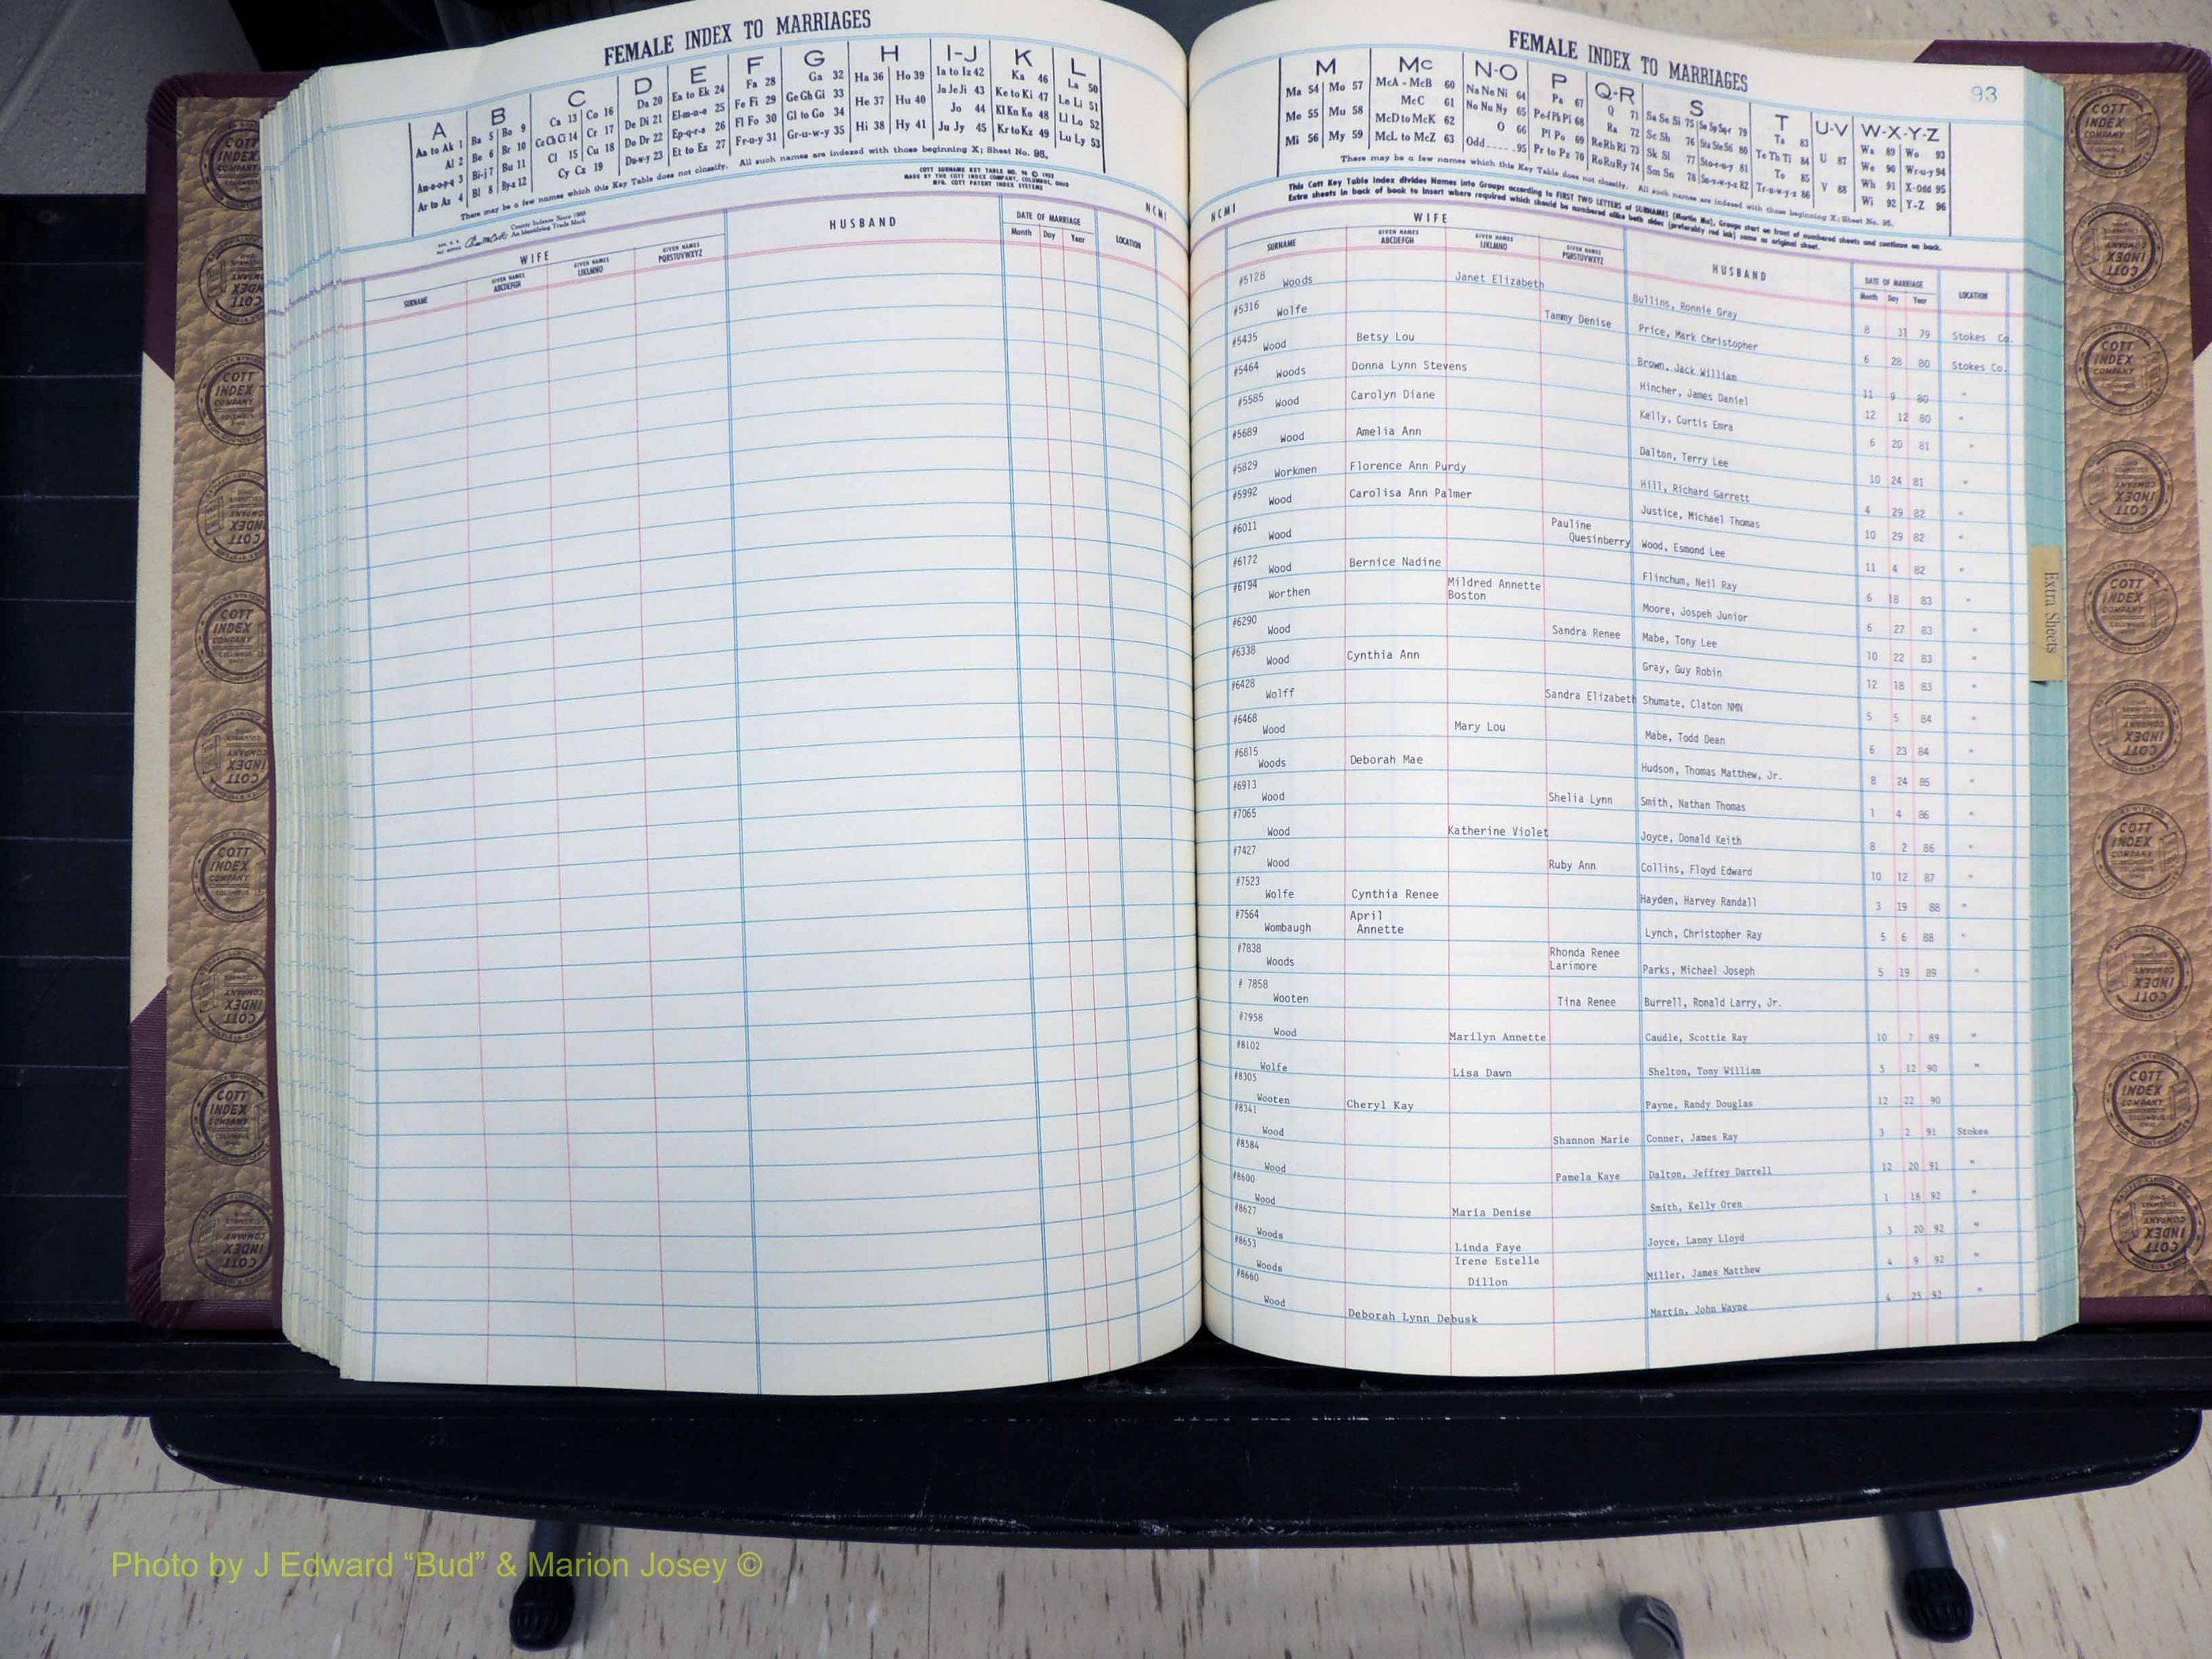 FEMALE INDEX TO MARRIAGES
A B C D E F G H I-J K L
Aa to Ak 1 Ba 5 Bo 9 Ca 13 Co 16 Da 20 Ea to Ek 24 Fa 28 Ga 32 Ha 36 Ho 39 Ia to Iz 42 Ka 46 La 50
Al 2 Be 6 Br 10 Ce Ch Ci 14 Cr 17 De Di 21 El-m-n-o 25 Fe Fi 29 Ge Gh Gi 33 He 37 Hu 40 Ja Je Ji 43 Ke to Ki 47 Le Li 51
Am-n-o-p-q 3 Bi-j 7 Bu 11 Cl 15 Cu 18 Do Dr 22 Ep-q-r-s 26 Fl Fo 30 Gl to Go 34 Hi 38 Hy 41 Jo 44 Kl Kn Ko 48 Ll Lo 52
Ar to Az 4 Bl 8 By-z 12 Cy Cz 19 Du-w-y 23 Et to Ez 27 Fr-u-y 31 Gr-u-w-y 35 Ju Jy 45 Kr to Kz 49 Lu Ly 53
There may be a few names which this Key Table does not classify. All such names are indexed with those beginning X; Sheet No. 95.
COTT SURNAME KEY TABLE NO. 96 ©
MADE BY THE COTT INDEX COMPANY, COLUMBUS, OHIO
MFG. COTT PATENT INDEX SYSTEMS
County Indexes Since 1888
An Identifying Trade Mark
NCMI
WIFE HUSBAND DATE OF MARRIAGE LOCATION
SURNAME GIVEN NAMES ABCDEFGH GIVEN NAMES IJKLMNO GIVEN NAMES PQRSTUVWXYZ Month Day Year
FEMALE INDEX TO MARRIAGES
93
M Mc N-O P Q-R S T U-V W-X-Y-Z
Ma 54 Mo 57 McA - McB 60 Na Ne Ni 64 Pa 67 Q 71 Sa Se Si 75 So Sp Sq-r 79 Ta 83 Wa 89 Wo 93
Me 55 Mu 58 McC 61 No Nu Ny 65 Pe-f Ph Pi 68 Ra 72 Sc Sh 76 Sta Ste Sti 80 Te Th Ti 84 U 87 We 90 Wr-u-y 94
Mi 56 My 59 McD to McK 62 O 66 Pl Po 69 Re Rh Ri 73 Sk Sl 77 Sto-r-u-y 81 To 85 V 88 Wh 91 X-Odd 95
McL to McZ 63 Odd 95 Pr to Pz 70 Ro Ru Ry 74 Sm Sn 78 Su-v-w-y-z 82 Tr-u-w-y-z 86 Wi 92 Y-Z 96
There may be a few names which this Key Table does not classify. All such names are indexed with those beginning X; Sheet No. 95.
This Cott Key Table Index divides Names into Groups according to FIRST TWO LETTERS of SURNAMES (Martin Ma), Groups start on front of numbered sheets and continue on back.
Extra sheets in back of book to insert where required which should be numbered alike both sides (preferably red ink) same as original sheet.
NCMI
WIFE HUSBAND DATE OF MARRIAGE LOCATION
SURNAME GIVEN NAMES ABCDEFGH GIVEN NAMES IJKLMNO GIVEN NAMES PQRSTUVWXYZ Month Day Year
#5128 Woods Janet Elizabeth Bullins, Ronnie Gray 8 31 79 Stokes Co.
#5316 Wolfe Tammy Denise Price, Mark Christopher 6 28 80 Stokes Co.
#5435 Wood Betsy Lou Brown, Jack William 11 9 80 "
#5464 Woods Donna Lynn Stevens Hincher, James Daniel 12 12 80 "
#5585 Wood Carolyn Diane Kelly, Curtis Emra 6 20 81 "
#5689 Wood Amelia Ann Dalton, Terry Lee 10 24 81 "
#5829 Workmen Florence Ann Purdy Hill, Richard Garrett 4 29 82 "
#5992 Wood Carolisa Ann Palmer Justice, Michael Thomas 10 29 82 "
#6011 Wood Pauline Quesinberry Wood, Esmond Lee 11 4 82 "
#6172 Wood Bernice Nadine Flinchum, Neil Ray 6 18 83 "
#6194 Worthen Mildred Annette Boston Moore, Jospeh Junior 6 27 83 "
#6290 Wood Sandra Renee Mabe, Tony Lee 10 22 83 "
#6338 Wood Cynthia Ann Gray, Guy Robin 12 18 83 "
#6428 Wolff Sandra Elizabeth Shumate, Claton NMN 5 5 84 "
#6468 Wood Mary Lou Mabe, Todd Dean 6 23 84 "
#6815 Woods Deborah Mae Hudson, Thomas Matthew, Jr. 8 24 85 "
#6913 Wood Shelia Lynn Smith, Nathan Thomas 1 4 86 "
#7065 Wood Katherine Violet Joyce, Donald Keith 8 2 86 "
#7427 Wood Ruby Ann Collins, Floyd Edward 10 12 87 "
#7523 Wolfe Cynthia Renee Hayden, Harvey Randall 3 19 88 "
#7564 Wombaugh April Annette Lynch, Christopher Ray 5 6 88 "
#7838 Woods Rhonda Renee Larimore Parks, Michael Joseph 5 19 89 "
# 7858 Wooten Tina Renee Burrell, Ronald Larry, Jr.
#7958 Wood Marilyn Annette Caudle, Scottie Ray 10 7 89 "
#8102 Wolfe Lisa Dawn Shelton, Tony William 5 12 90 "
#8305 Wooten Cheryl Kay Payne, Randy Douglas 12 22 90
#8341 Wood Shannon Marie Conner, James Ray 3 2 91 Stokes
#8584 Wood Pamela Kaye Dalton, Jeffrey Darrell 12 20 91 "
#8600 Wood Maria Denise Smith, Kelly Oren 1 18 92 "
#8627 Woods Linda Faye Joyce, Lanny Lloyd 3 20 92 "
#8653 Woods Irene Estelle Dillon Miller, James Matthew 4 9 92 "
#8660 Wood Deborah Lynn Debusk Martin, John Wayne 4 25 92 "
Extra Sheets
COTT INDEX COMPANY
Photo by J Edward “Bud” & Marion Josey ©